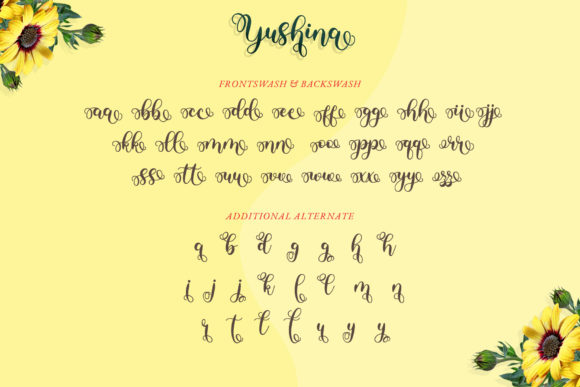 Yushina
FRONTSWASH & BACKSWASH
aa bb cc dd ee ff gg hh ii jj
kk ll mm nn oo pp qq rr
ss tt uu vv ww xx yy zz
ADDITIONAL ALTERNATE
q b d g g h h
i j j k l l m n
r t t l y y y